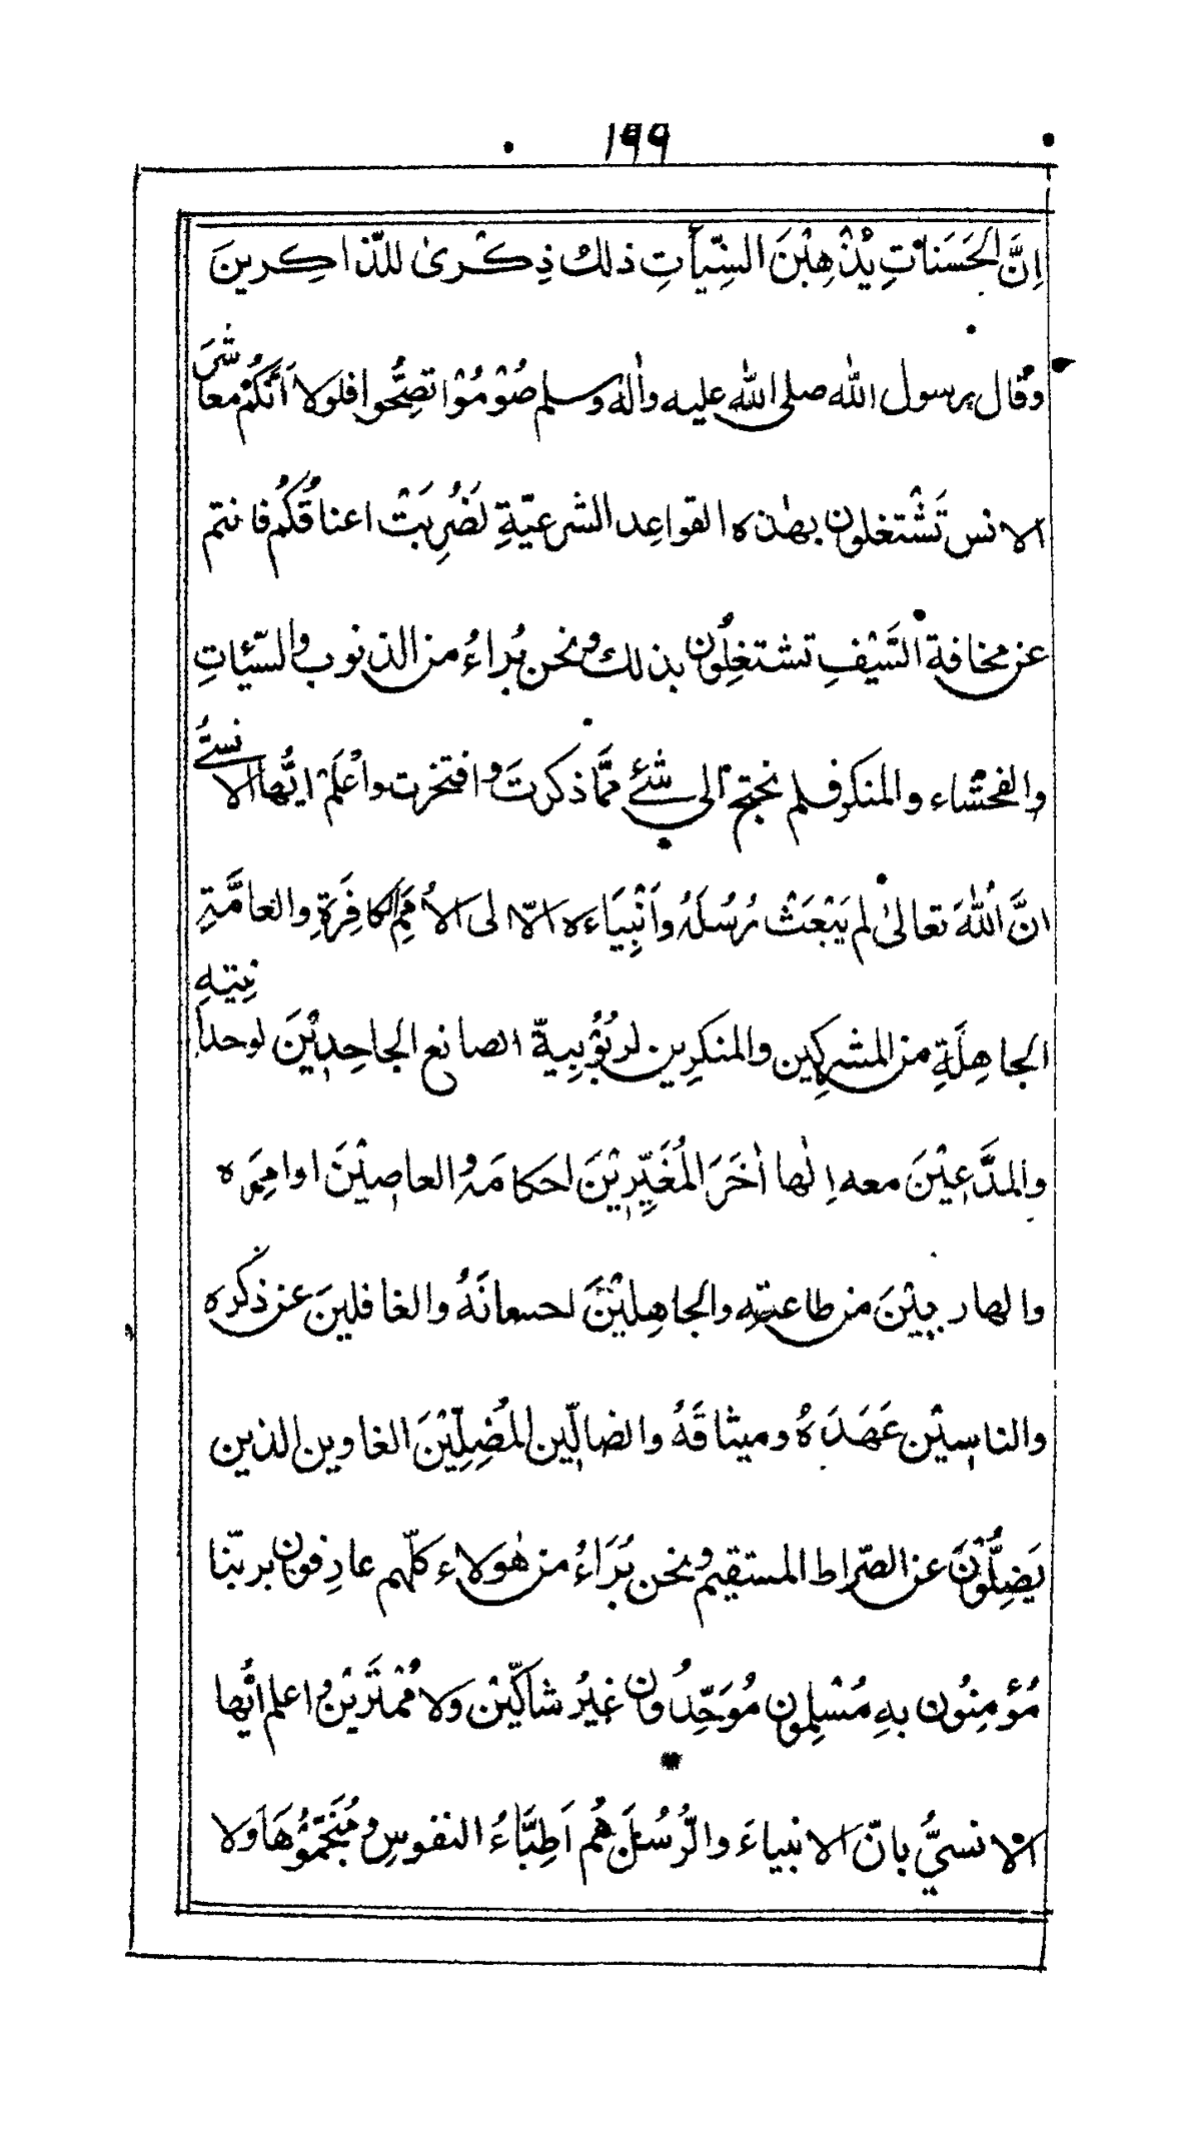 ١٩٩
اِنَّ الحَسَنٰاتِ يُذْهِبْنَ السَّيِّأٰتِ ذٰلك ذِكْرىٰ للذّاكِرينَ
وقال رسول اللّٰه صلى اللّٰه عليه واٰلهٖ وسلم صُوْمُوْا تصِحُّوا فلولا اَنَّكُمْ معاشَر
الانس تَشْتغلون بهٰذه القواعِد الشرعيّةِ لَضُرِبَتْ اعناقُكُم فانتم
عن مخافة السَّيْفِ تشتغِلُون بذلك ونحن بُراءُ من الذنوب والسّيئاتِ
والفحشاء والمنكر فلم نحتج الى شئٍ ممَّا ذكرتَ وافتخرت واعْلَمْ ايُّها الانسىُّ
انَّ اللّٰهَ تعالىٰ لم يَبْعَثْ رُسُلَهُ واَنْبِيَاءه الّا الى الاُمَمِ الكافِرَةِ والعامَّةِ
الجاهِلَةِ من المشركِين والمنكرِين لرُبُوْبِيةّ الصانع الجاحِدِيْنَ لوحدانِيّتهِ
والمدَّعِيْنَ معه اِلٰها اٰخَرَ المُغَيِّرِيْنَ لحكامَهُ والعاصِيْنَ اوامِرَه
والهاربِيْنَ من طاعتهِ والجاهِلِيْنَ لحسانَهُ والغافلينَ عن ذكره
والناسِيْن عَهَدَهُ وميثاقَهُ والضالّين المُضِلِّيْنَ الغاوين الذين
يَضِلُّوْنَ عن الصّراط المستقيم ونحن بُرَاءُ من هٰولاء كلّهم عارِفون بربّنا
مُؤمِنُون بهِ مُسْلِمون مُوَحِّدُون غيْرُ شاكّيْن ولا مُمْتَرَيْن واعلم ايُّها
الانسيُّ بانّ الانبياءَ والرُّسُلَ هُم اَطِبَّاءُ النفوسِ ومُنَجِّمُوْهَا ولا